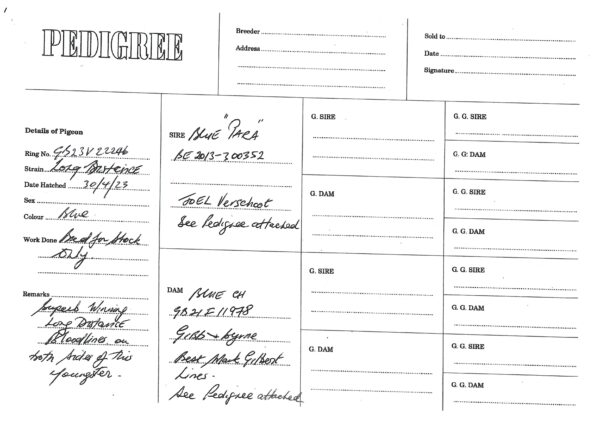 PEDIGREE
Breeder
Address
Sold to
Date
Signature
Details of Pigeon
Ring No. GB23V22246
Strain Long Distance
Date Hatched 30/4/23
Sex
Colour Blue
Work Done Bred for Stock
Only
Remarks
Superb Winning
Long Distance
Bloodlines on
both sides of this
youngster.
SIRE Blue "PARA"
BE 2013-300352
JOEL Verschoot
See Pedigree attached
DAM BLUE CH
GB21E11978
Gibb + byrne
Best Mark Gilbert
Lines.
See Pedigree attached
G. SIRE
G. DAM
G. SIRE
G. DAM
G. G. SIRE
G. G. DAM
G. G. SIRE
G. G. DAM
G. G. SIRE
G. G. DAM
G. G. SIRE
G. G. DAM